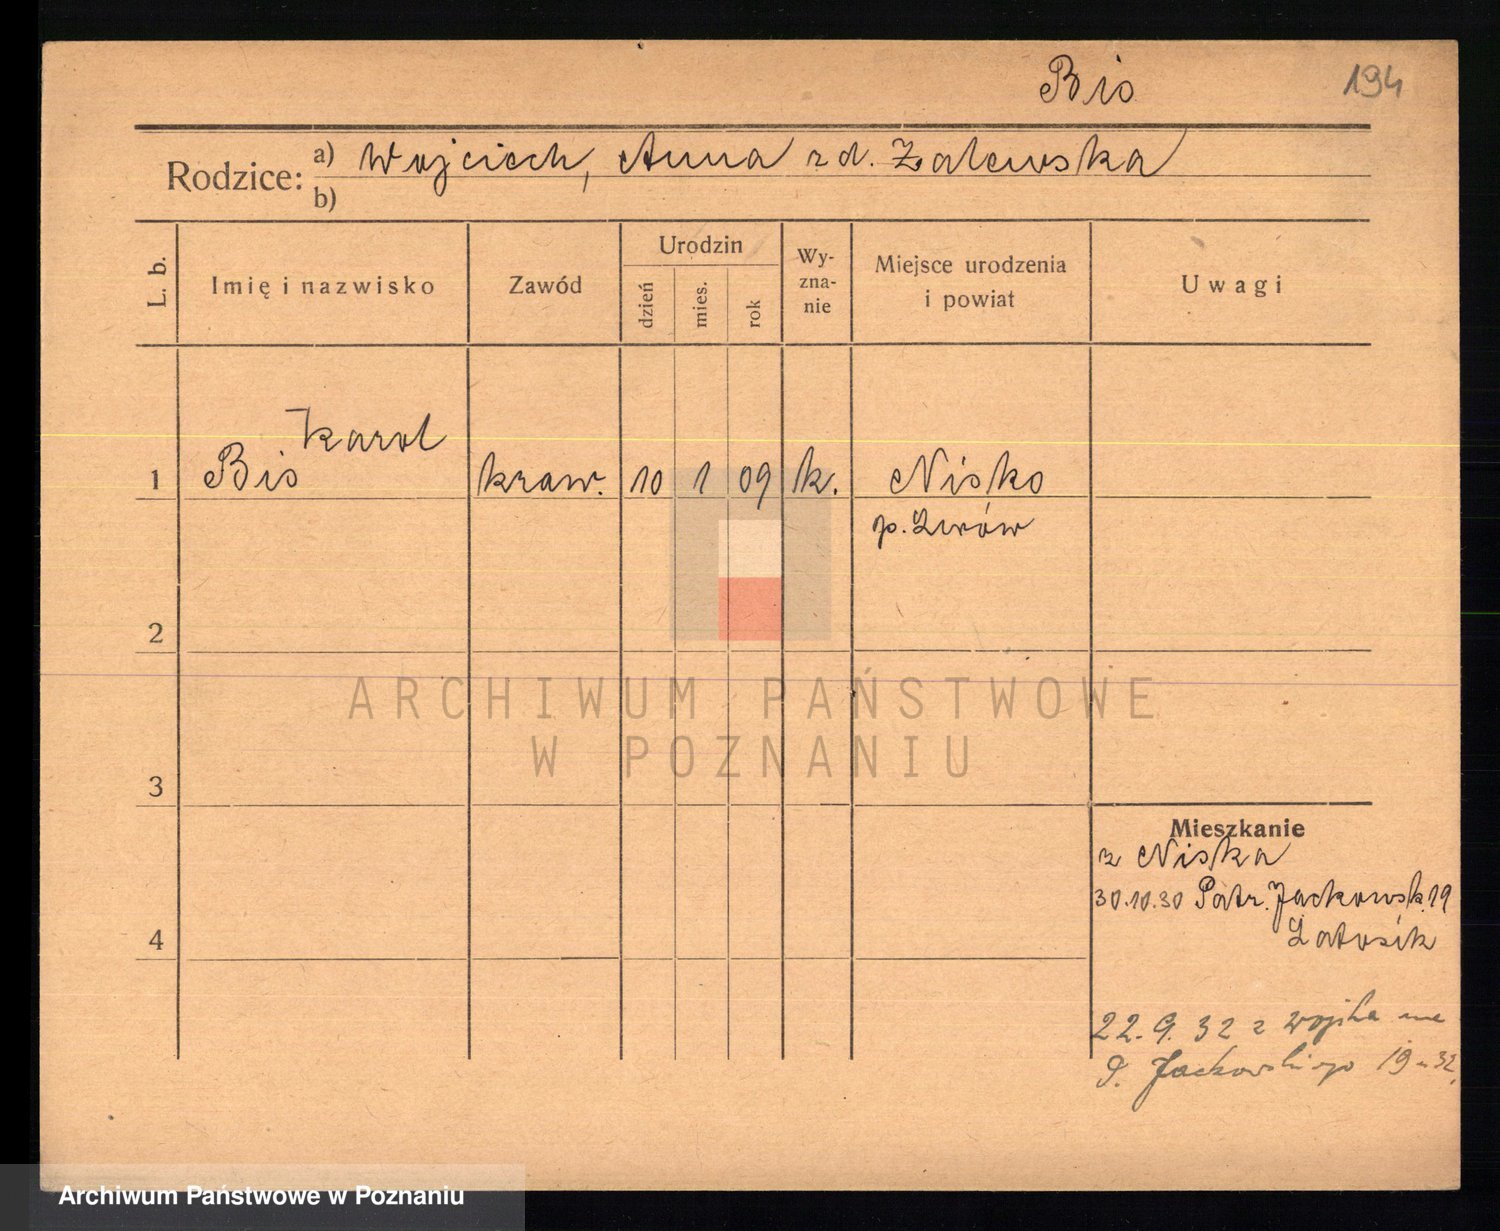 Bis 194
Rodzice: a) Wojciech, Anna zd. Zalewska
b)
L. b. Imię i nazwisko Zawód Urodzin dzień mies. rok Wyznanie Miejsce urodzenia i powiat Uwagi
Karol
1 Bis kraw. 10 1 09 k. Nisko
p. Lwów
2
ARCHIWUM PAŃSTWOWE
W POZNANIU
3
Mieszkanie
z Niska
30.10.30 Patr. Jackowsk. 19
4
22.9.32 z wojska na
P. Jackowskiego 19
Archiwum Państwowe w Poznaniu